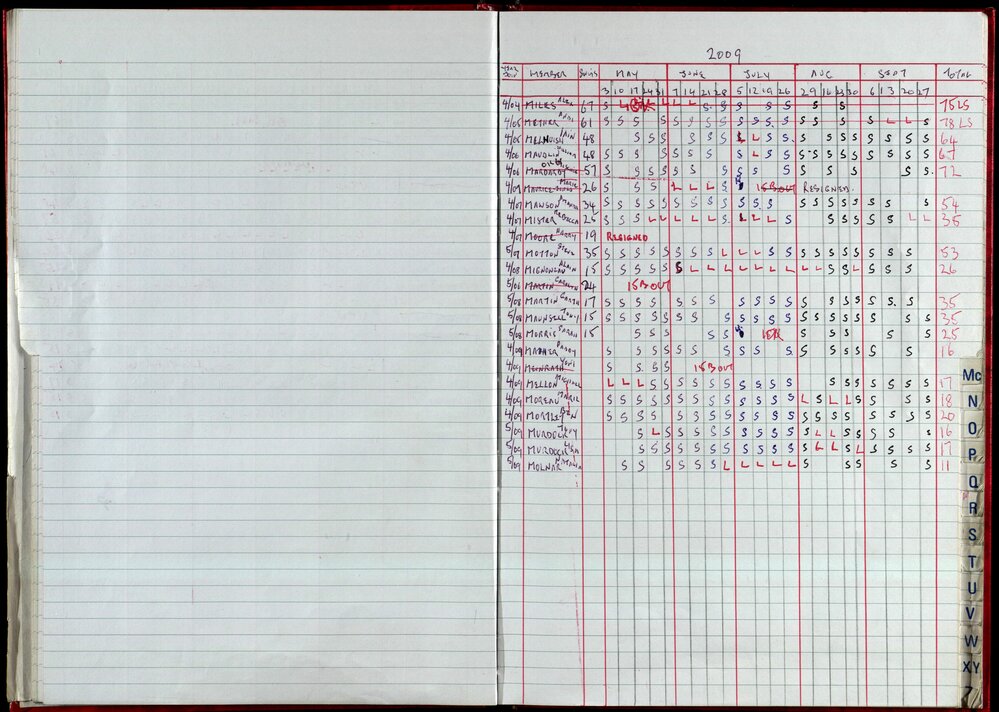 2009
YEAR JOIN MEMBER SWIMS MAY JUNE JULY AUG SEPT TOTAL
3 10 17 24 31 7 14 21 28 5 12 19 26 2 9 16 23 30 6 13 20 27
4/04 MILES ALEX 67 S L L L S S S S S S S 75 LS
4/05 METHER 61 S S S S S S S S S S S S S S S S L L S 78 LS
4/05 MELHUISH IAIN 48 S S S S S S L L S S S S S S S S S S S 64
4/06 MAUDLIN 48 S S S S S S S S S L S S S S S S S S S S S 67
4/06 57 S S S S S S S S S S S S S S 72
4/09 26 S S S L L L S 15 B OUT RESIGNED
4/07 MAWSON 34 S S S S S S S S S S S S S S S S S S S S 54
4/07 MISTER REBECCA 25 S S S L L L L L S L L L S S S S S S S L L 36
4/07 MOORE HARRY 19 RESIGNED
5/07 MOTTON STEVE 35 S S S S S S S S L L L S S S S S S S S S S 53
4/08 MIGNONEAU ALAIN 15 S S S S S S L L L L L L L L L S S L S S S 26
5/06 MARTIN CAROLYN 24 15 B OUT
5/08 MARTIN GARTH 17 S S S S S S S S S S S S S S S S S S 35
5/08 MAUNSELL TONY 15 S S S S S S S S S S S S S S S S S S S S 35
5/08 MORRIS SARAH 15 S S S S S S S S S S 25
4/09 MATHER PADDY S S S S S S S S S S S S S S S 16
4/09 S S S S 15 B OUT
4/09 MELLON L L L S S S S S S S S S S S S S S S S S S 17
4/09 MOREAU MARIE S S S S S S S S S S S S S L S L L S S S S 18
4/09 MORTLEY BEN S S S S S S S S S S S S S S S S S S S S 20
5/09 MURDOCH TONY S L S S S S S S S S S S L L S S S S S 16
5/09 MURDOCH LISA S S S S S S S S S S S S L L S L S S S 17
5/09 MOLNAR NATALIA S S S S S S L L L L L S S S S S 11
Mc
N
O
P
Q
R
S
T
U
V
W
XY
Z